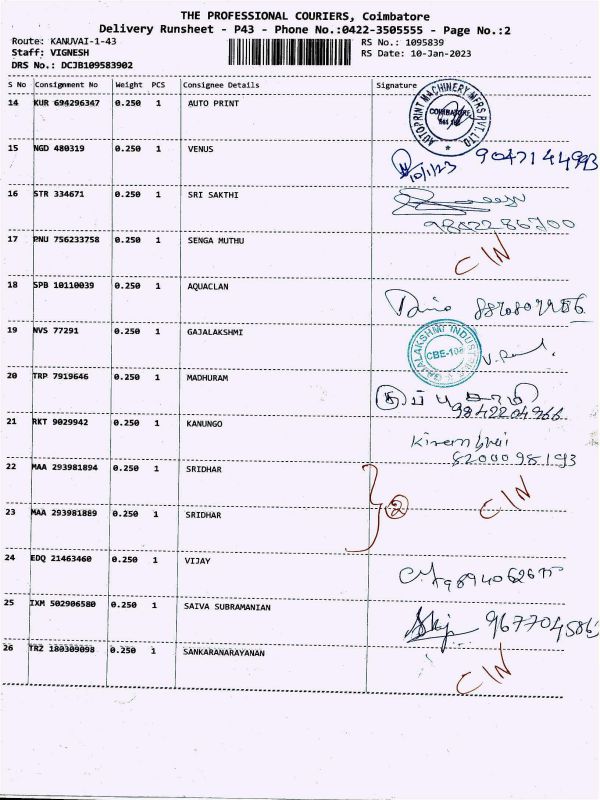 THE PROFESSIONAL COURIERS, Coimbatore
Delivery Runsheet - P43 - Phone No.:0422-3505555 - Page No.:2
Route: KANUVAI-1-43 RS No.: 1095839
Staff: VIGNESH RS Date: 10-Jan-2023
DRS No.: DCJB109583902
S No Consignment No Weight PCS Consignee Details Signature
14 KUR 694296347 0.250 1 AUTO PRINT AUTOPRINT MACHINERY MFRS PVT. LTD. COIMBATORE
15 NGD 480319 0.250 1 VENUS 10/1/23 9047144993
16 STR 334671 0.250 1 SRI SAKTHI 9842286700
17 PNU 756233758 0.250 1 SENGA MUTHU C/N
18 SPB 10110039 0.250 1 AQUACLAN
19 NVS 77291 0.250 1 GAJALAKSHMI GAJALAKSHMI INDUSTRIES CBE-108
20 TRP 7919646 0.250 1 MADHURAM 9842204966
21 RKT 9029942 0.250 1 KANUNGO Kirenbhai 8200098193
22 MAA 293981894 0.250 1 SRIDHAR C/N
23 MAA 293981889 0.250 1 SRIDHAR 2
24 EDQ 21463460 0.250 1 VIJAY
25 IXM 502906580 0.250 1 SAIVA SUBRAMANIAN 9677045863
26 TRZ 180309098 0.250 1 SANKARANARAYANAN C/N